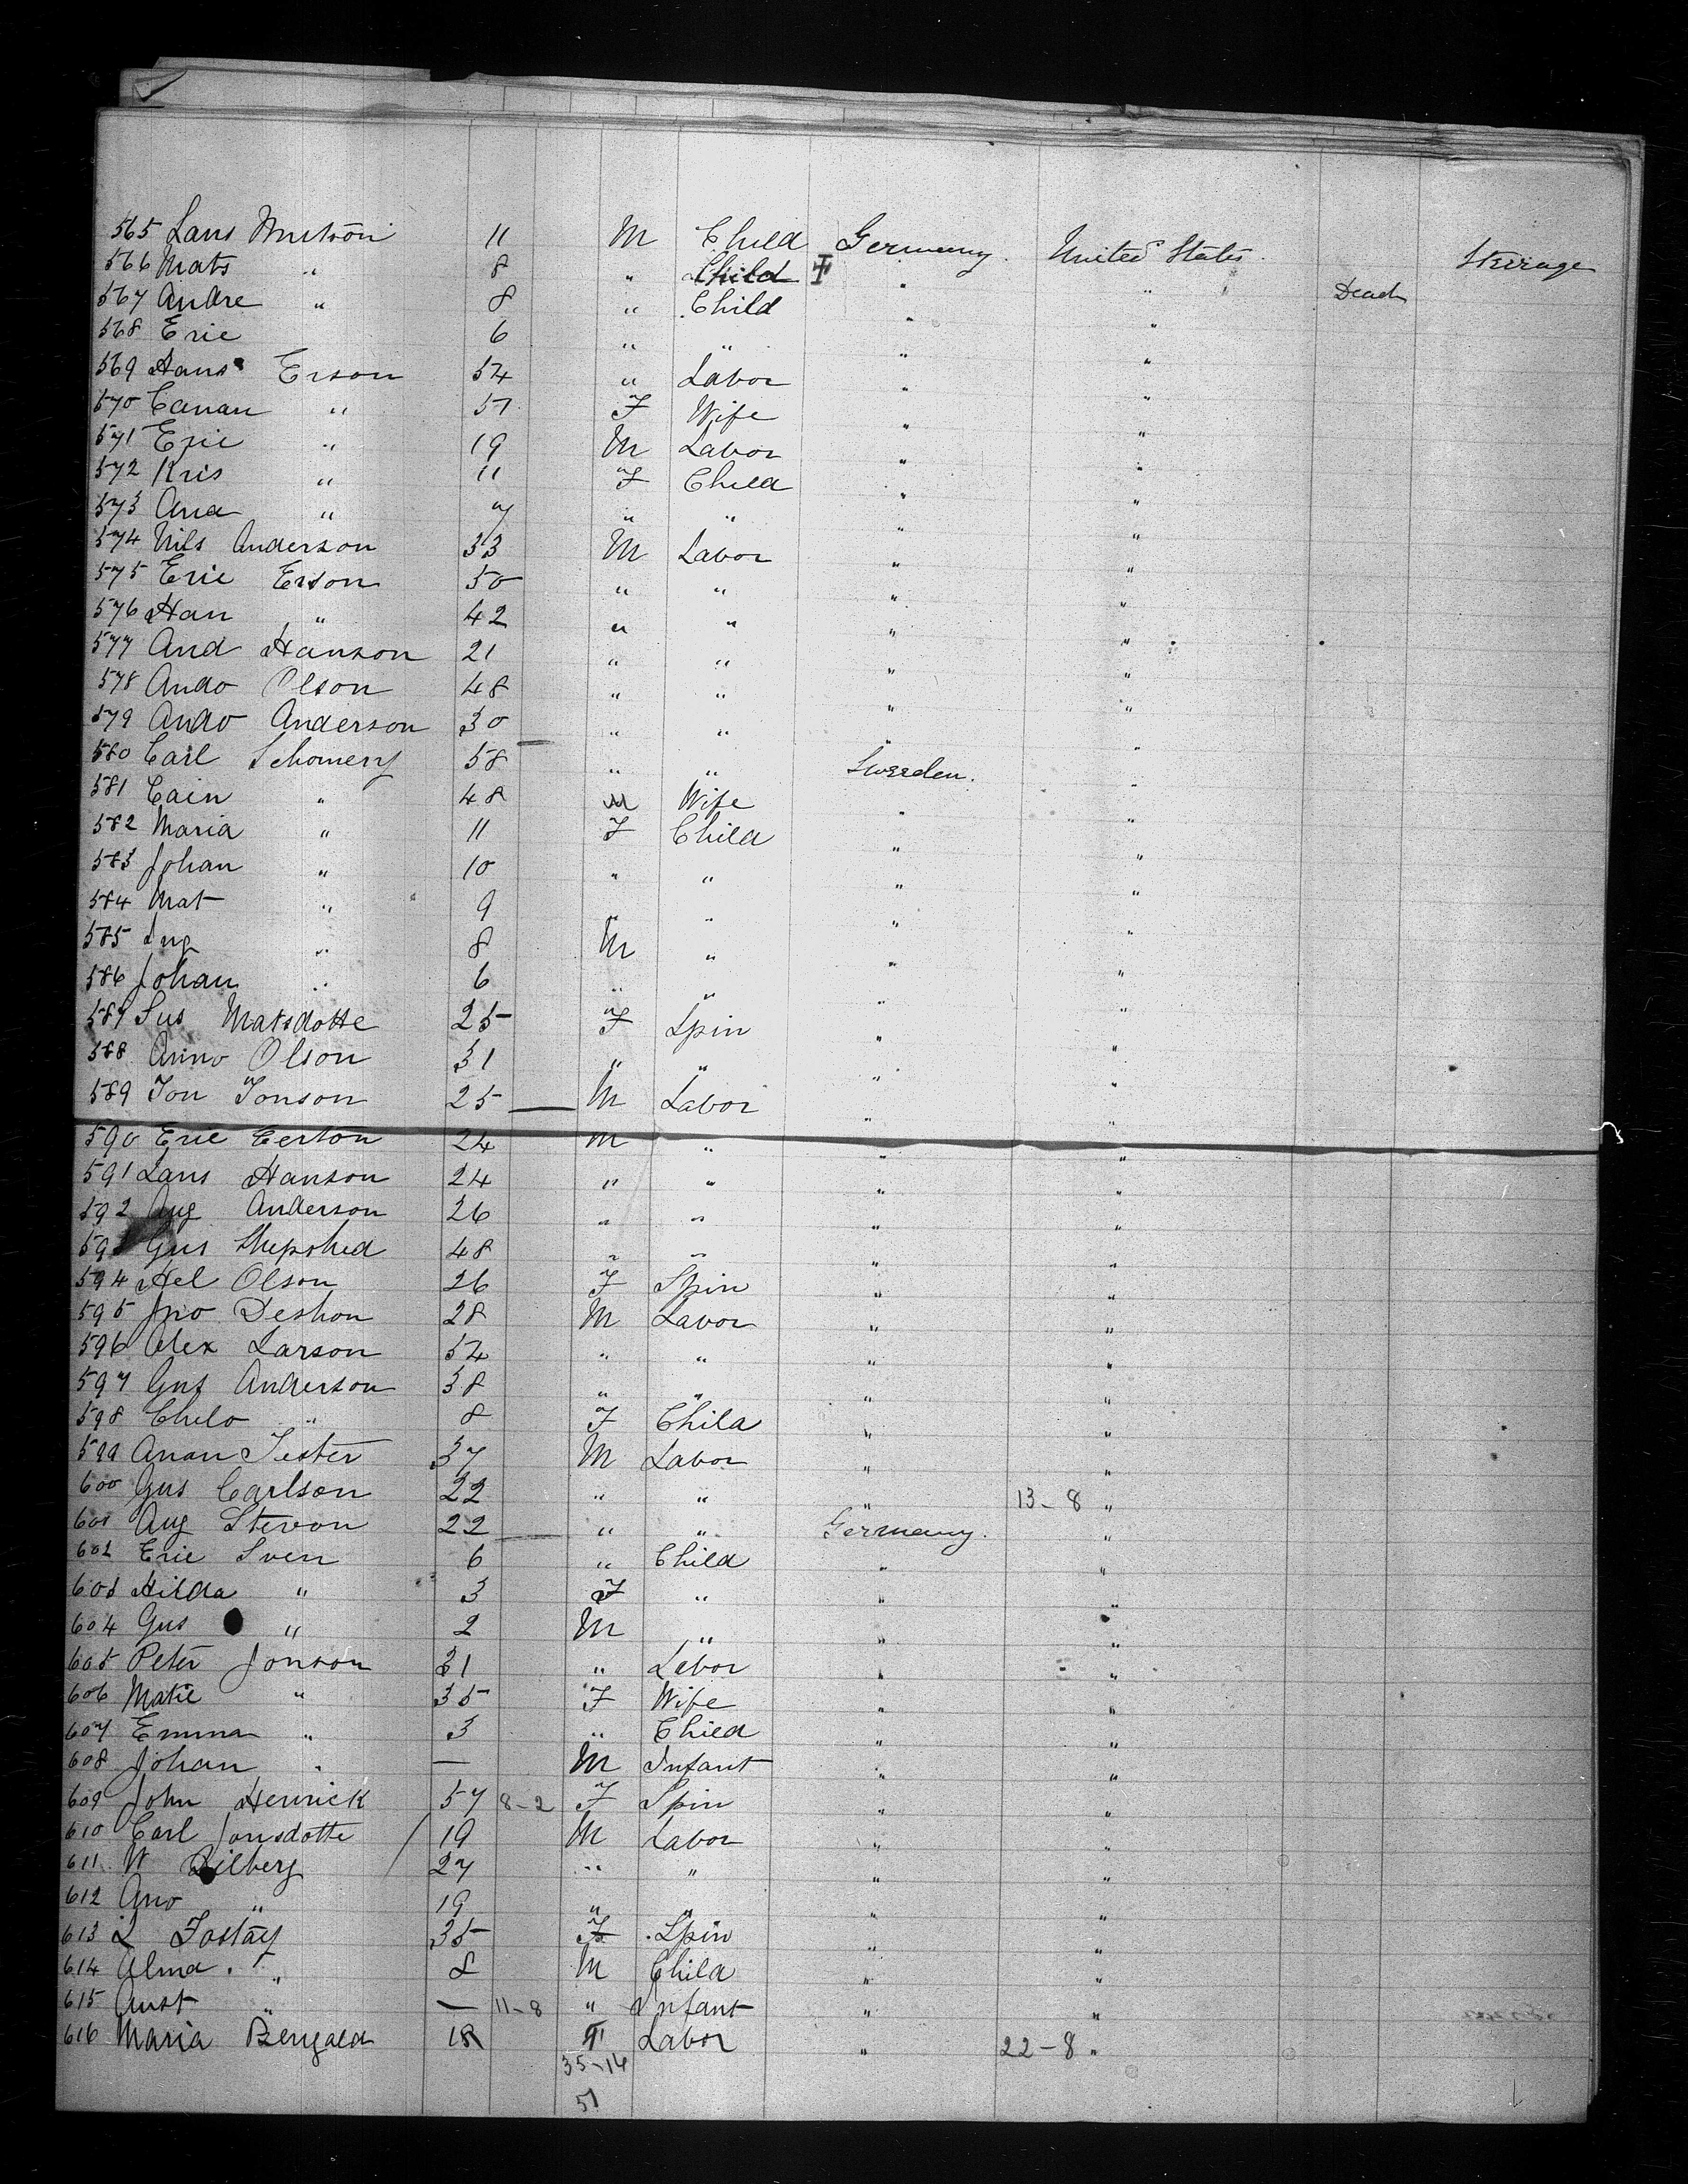 565 Lars 11 M Child Germany. United States. Steerage
566 Mats " 8 " Child " " Dead
567 Andre " 8 " Child " "
568 Eric 6 " " " "
569 Hans Erson 54 " Labor " "
570 Canan " 51 F Wife " "
571 Eric " 19 M Labor " "
572 Kris " 11 F Child " "
573 Ana " 7 " " " "
574 Nils Anderson 33 M Labor " "
575 Eric Erson 50 " " " "
576 Han " 42 " " " "
577 And Hanson 21 " " " "
578 Ando Olson 48 " " " "
579 Ando Anderson 30 " " " "
580 Carl Schomery 58 " " Sweden. "
581 Cain " 48 M Wife " "
582 Maria " 11 F Child " "
583 Johan " 10 " " " "
584 Mat " 9 " " " "
585 " 8 M " " "
586 Johan " 6 " " " "
587 Sus Matsdotte 25 F Spin " "
588 Anno Olson 31 " " " "
589 Jon Jonson 25 — M Labor " "
590 Eric Cerson 24 M " " "
591 Lars Hanson 24 " " " "
592 Aug Anderson 26 " " " "
593 Gus 48 " " " "
594 Hel Olson 26 F Spin " "
595 Jno Deshon 28 M Labor " "
596 Alex Larson 54 " " " "
597 Gus Anderson 38 " " " "
598 Chilo " 8 F Child " "
599 Anan Jester 37 M Labor " "
600 Gus Carlson 22 " " " 13-8 "
601 Aug Stevon 22 — " " Germany. "
602 Eric Sven 6 " Child " "
603 Hilda " 3 F " " "
604 Gus " 2 M " " "
605 Peter Jonson 31 " Labor " "
606 Matie " 35 F Wife " "
607 Emma " 3 " Child " "
608 Johan " — M Infant " "
609 John Henrick 57 8-2 F Spin " "
610 Carl Jonsdotte 19 M Labor " "
611 W Bilberg 27 " " " "
612 Ano " 19 " " " "
613 L Fostay 35 F Spin " "
614 Alma " 8 M Child " "
615 Aust " — 11-8 " Infant " "
616 Maria Bengald 18 F Labor " 22-8 "
35-16
51